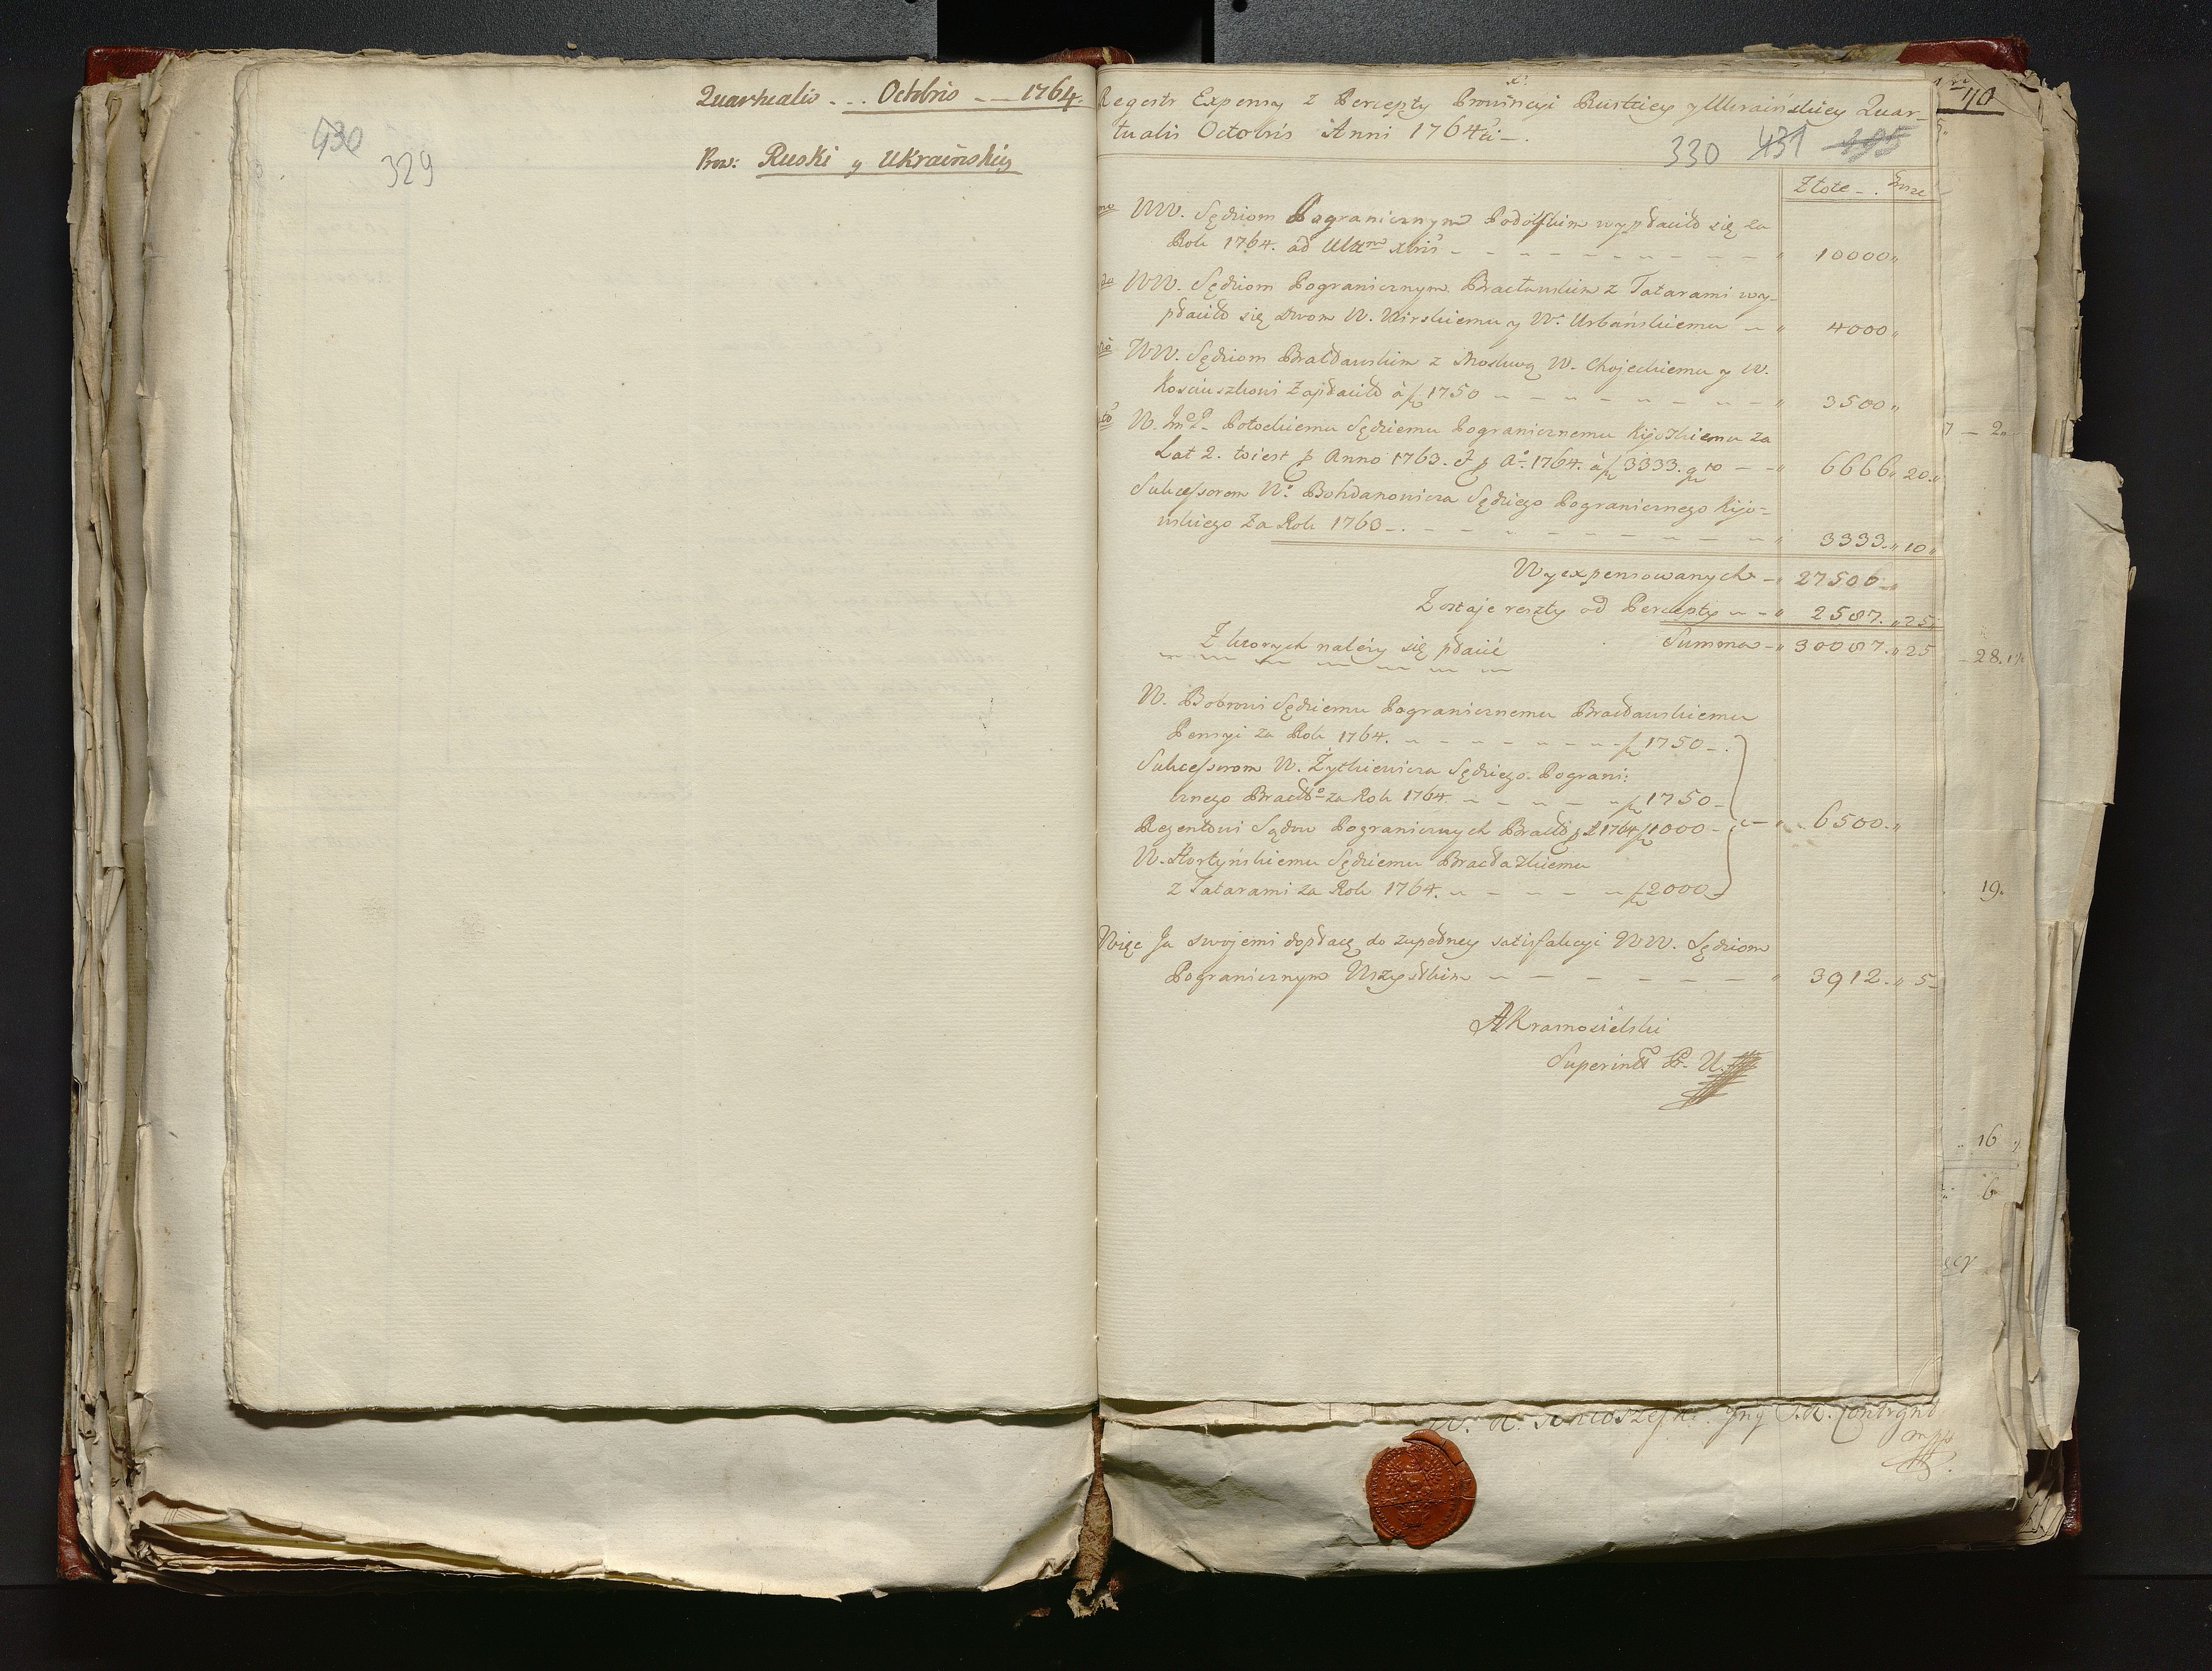 Quartualis - .. Octobris - - 1764.
430
329
Prow: Ruski y Ukraińskiy
Regestr Expensy z Percepty Prowincyi Ruskiey y Ukraińskiey Quar-
tualis Octobris Anni 1764ti -.
330 431 495
Złote - . Grosze
WW. Sędziom Pogranicznym Podolskim wypłaciło się za
Rok 1764. ad Ultm Xbris - - - - - - - - - " 10000 "
WW. Sędziom Pogranicznym Bracławskim z Tatarami wy-
płaciło się dwom W. Wirskiemu y W. Urbańskiemu - " 4000 "
WW. Sędziom Bracławskim z Moskwą W. Chojeckiemu y W.
Kosciuszkowi Zapłaciło à fl 1750 - - - - - - - " 3500 "
W. Jmć P. Potockiemu Sędziemu Pogranicznemu Kijowskiemu za
Lat 2. toiest p Anno 1763. et p Ao. 1764. à fl 3333. gr 10 - - " 6666 " 20 "
Sukcessorom W. Bohdanowicza Sędziego Pogranicznego Kijo=
wskiego za Rok 1763 - . - - - - - - - - " 3333 " 10 "
Wyexpensowanych - " 27500 - "
Zostaje reszty od Percepty - - " 2587. " 25 "
Z ktorych należy się płacić
Summa - " 30087. " 25
W. Bobrowi Sędziemu Pogranicznemu Bracławskiemu
Pensyi za Rok 1764. - - - - - - - fl 1750 - .
Sukcessorom W. Żytkiewicza Sędziego Pograni:
cznego Bracło za Rok 1764. - - - - - fl 1750 -
Regentowi Sądow Pogranicznych Bracł p A 1764 fl 1000 - - " 6500 - "
W. Hortyńskiemu Sędziemu Bracławskiemu
z Tatarami za Rok 1764. - - - - - fl 2000 -
Więc Ja swojemi dopłacę do zupełney satisfakcyi WW. Sędziom
Pogranicznym Wszystkim - - - - - - - " 3912. " 5 -
AKramosielski
Superindt P. U.
7 - 2 "
- 28. 1
19.
16
6
Contrgnt
mpp